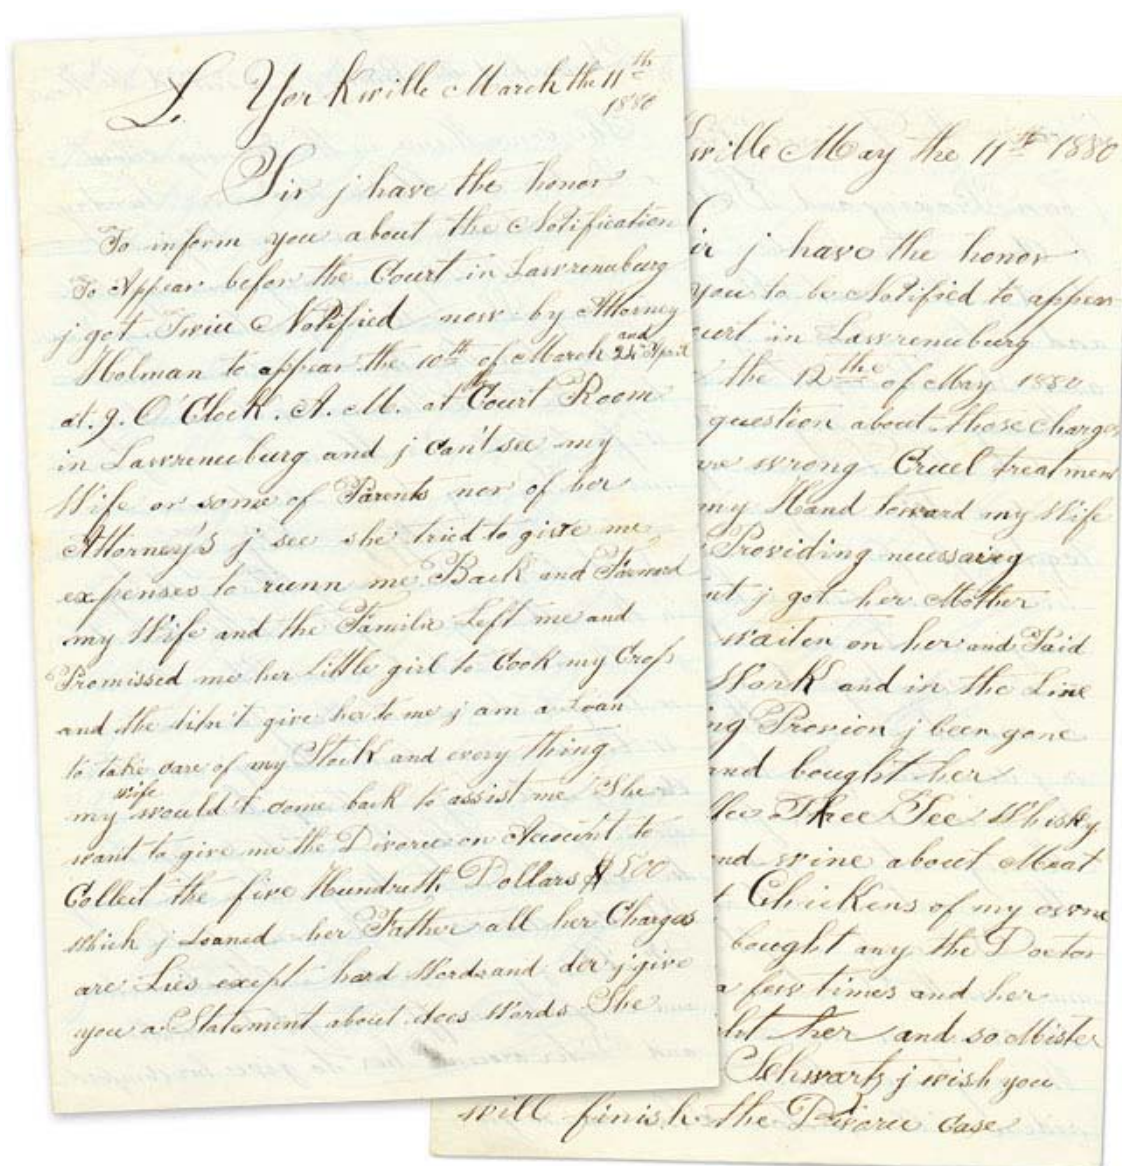 L. Yorkville March the 11th
1880
Sir j have the honor
To inform you about the Notification
To Appear befor the Court in Lawrenceburg
j got Twice Notified now by Attorney
Holman to appear the 10th of March and 24 April
at 9. O'Clock. A. M. at Court Room
in Lawrenceburg and j can't see my
Wife or some of Parents nor of her
Attorney's j see she tried to give me
expenses to runn me Back and Forward
my Wife and the Familie Left me and
Promissed me her Little girl to Cook my Crops
and the didn't give her to me j am a Loan
to take care of my Stock and every thing
my wife would't come back to assist me She
want to give me the Divorce on Account to
Collect the five Hundreth Dollars $500
which j Loaned her Father all her Charges
are Lies except hard Words and der j give
you a Statement about does Words She
ville May the 11th 1880
ir j have the honor
you to be Notified to appear
ourt in Lawrenceburg
the 12the of May 1880
question about those Charges
are wrong Cruel treatmen
my Hand toward my Wife
Providing necessarieg
ut j got her Mother
waiten on her and Paid
Work and in the Line
ng Provion j been gone
and bought her
Three Tee Whisky
nd wine about Meat
t Chickens of my owne
bought any the Doctor
a few times and her
ht her and so Mister
Schwartz j wish you
will finish the Divorce Case